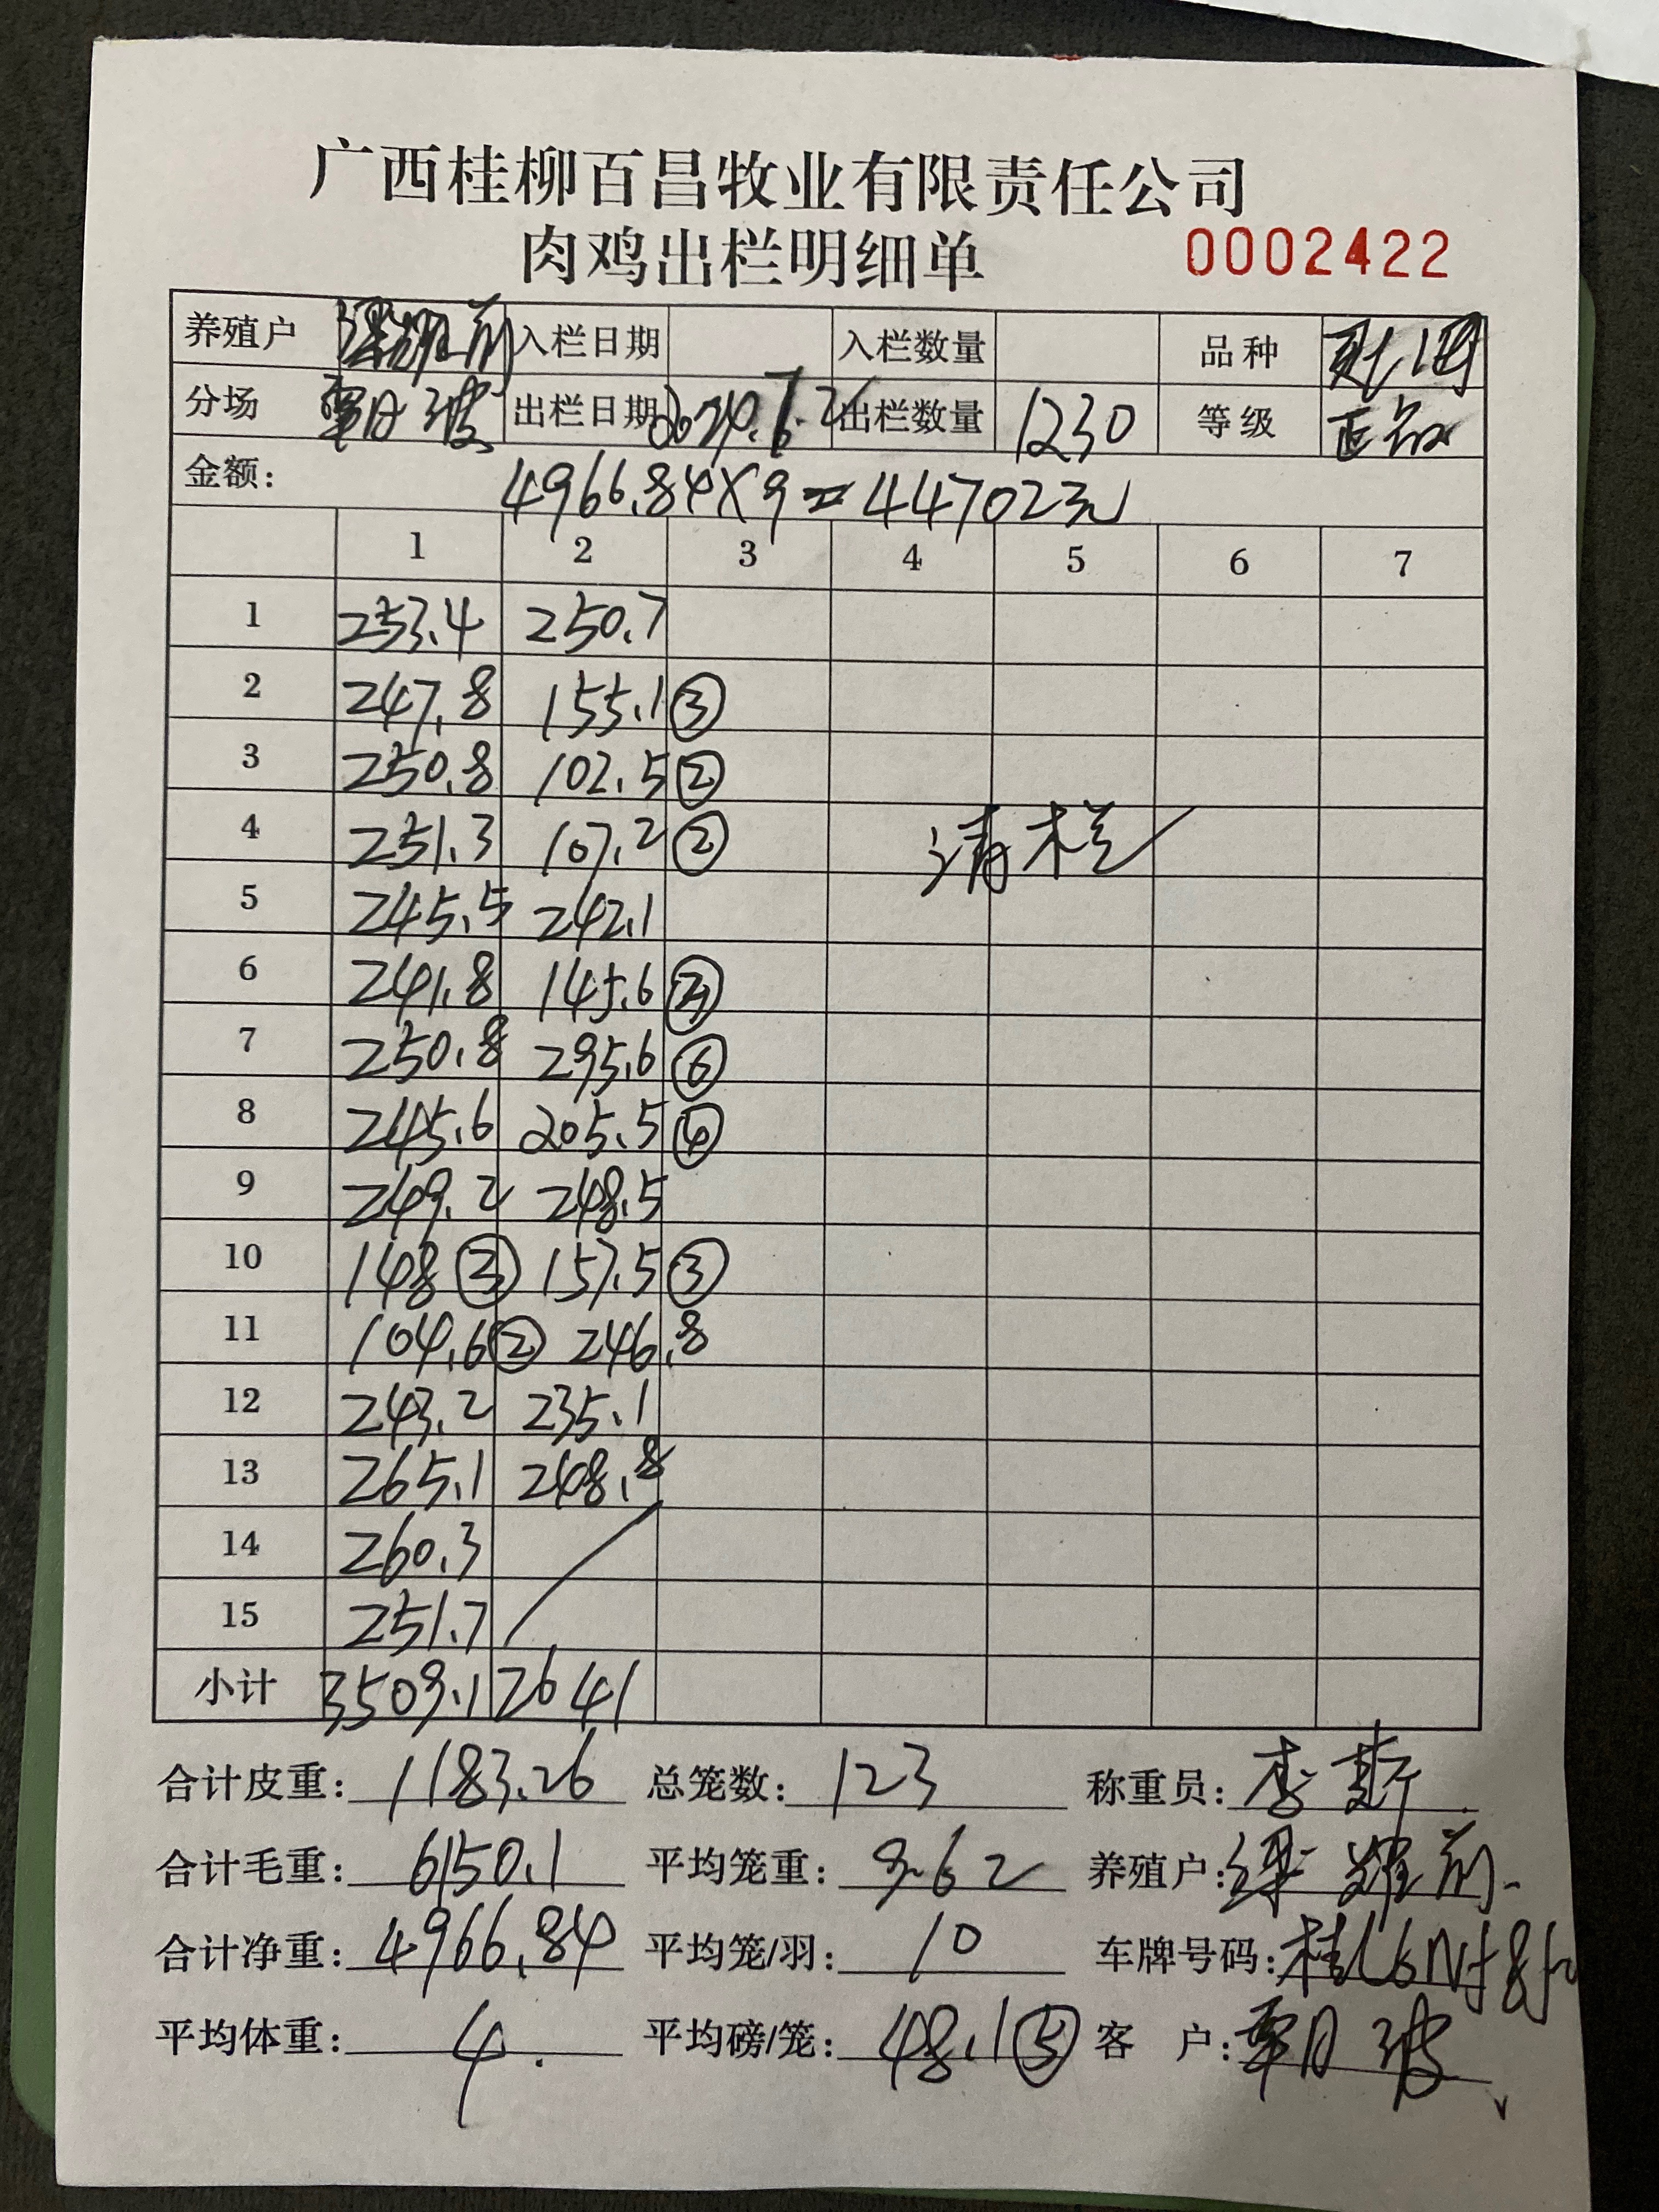 广西桂柳百昌牧业有限责任公司
肉鸡出栏明细单 0002422
养殖户 梁耀前 入栏日期 入栏数量 品种
分场 覃月波 出栏日期 2024. 出栏数量 1230 等级 正品
金额: 4966.84×9=44702元
1 2 3 4 5 6 7
1 253.4 250.7
2 247.8 155.1③
3 250.8 102.5②
4 251.3 107.2② 清栏
5 245.5 242.1
6 241.8 145.6③
7 250.8 295.6⑥
8 245.6 205.5④
9 249.2 248.5
10 148③ 157.5③
11 104.6② 246.8
12 243.2 235.1
13 265.1 248.8
14 260.3
15 251.7
小计 3509.1 2641
合计皮重: 1183.26 总笼数: 123 称重员: 李
合计毛重: 6150.1 平均笼重: 9.62 养殖户: 梁耀前
合计净重: 4966.84 平均笼/羽: 10 车牌号码:
平均体重: 4. 平均磅/笼: 48.1⑤ 客 户: 覃月波